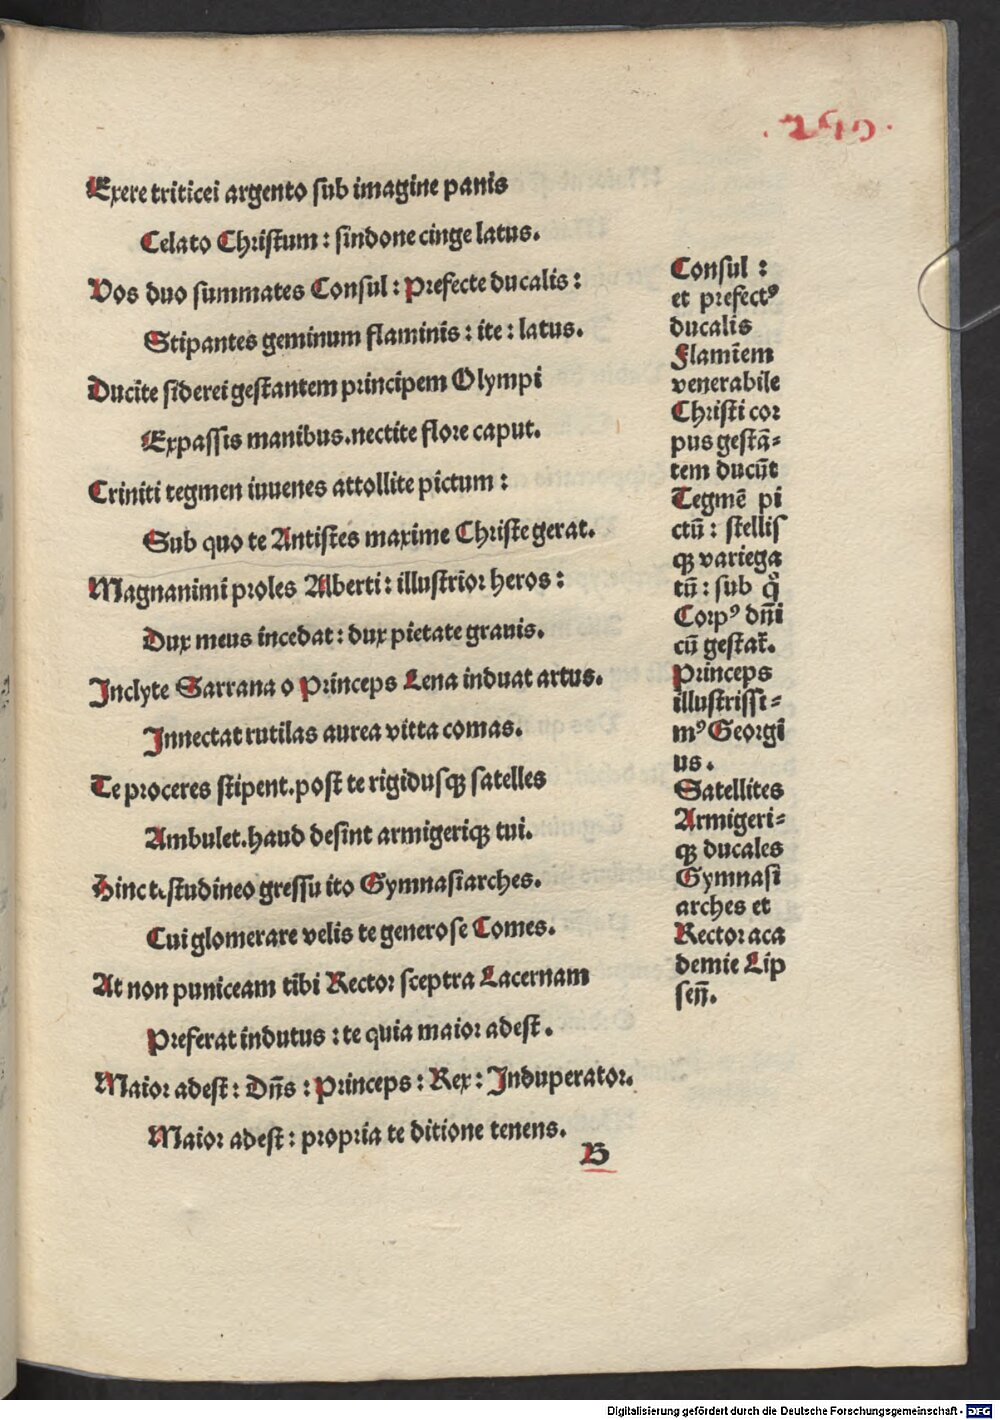 .290.
Exere triticei argento sub imagine panis
Celato Christum : sindone cinge latus.
Vos duo summates Consul : Prefecte ducalis :
Stipantes geminum flaminis : ite : latus.
Ducite siderei gestantem principem Olympi
Expassis manibus.nectite flore caput.
Criniti tegmen iuuenes attollite pictum :
Sub quo te Antistes maxime Christe gerat.
Magnanimi proles Alberti : illustrior heros :
Dux meus incedat : dux pietate grauis.
Inclyte Sarrana o Princeps Lena induat artus.
Innectat rutilas aurea vitta comas.
Te proceres stipent.post te rigidusqꝫ satelles
Ambulet.haud desint armigeriqꝫ tui.
Hinc testudineo gressu ito Gymnasiarches.
Cui glomerare velis te generose Comes.
At non puniceam tibi Rector sceptra Lacernam
Preferat indutus : te quia maior adest.
Maior adest : Dn̄s : Princeps : Rex : Induperator.
Maior adest : propria te ditione tenens.
B
Consul :
et prefectꝰ
ducalis
Flamīem
venerabile
Christi cor
pus gestā-
tem ducūt
Tegmē pi
ctū : stellis
qꝫ variega
tū : sub q̊
Corpꝰ dn̄i
cū gestat̄.
Princeps
illustrissi-
mꝰ Georgi
us.
Satellites
Armigeri-
qꝫ ducales
Gymnasi
arches et
Rector aca
demie Lip
sen̄.
Digitalisierung gefördert durch die Deutsche Forschungsgemeinschaft - DFG